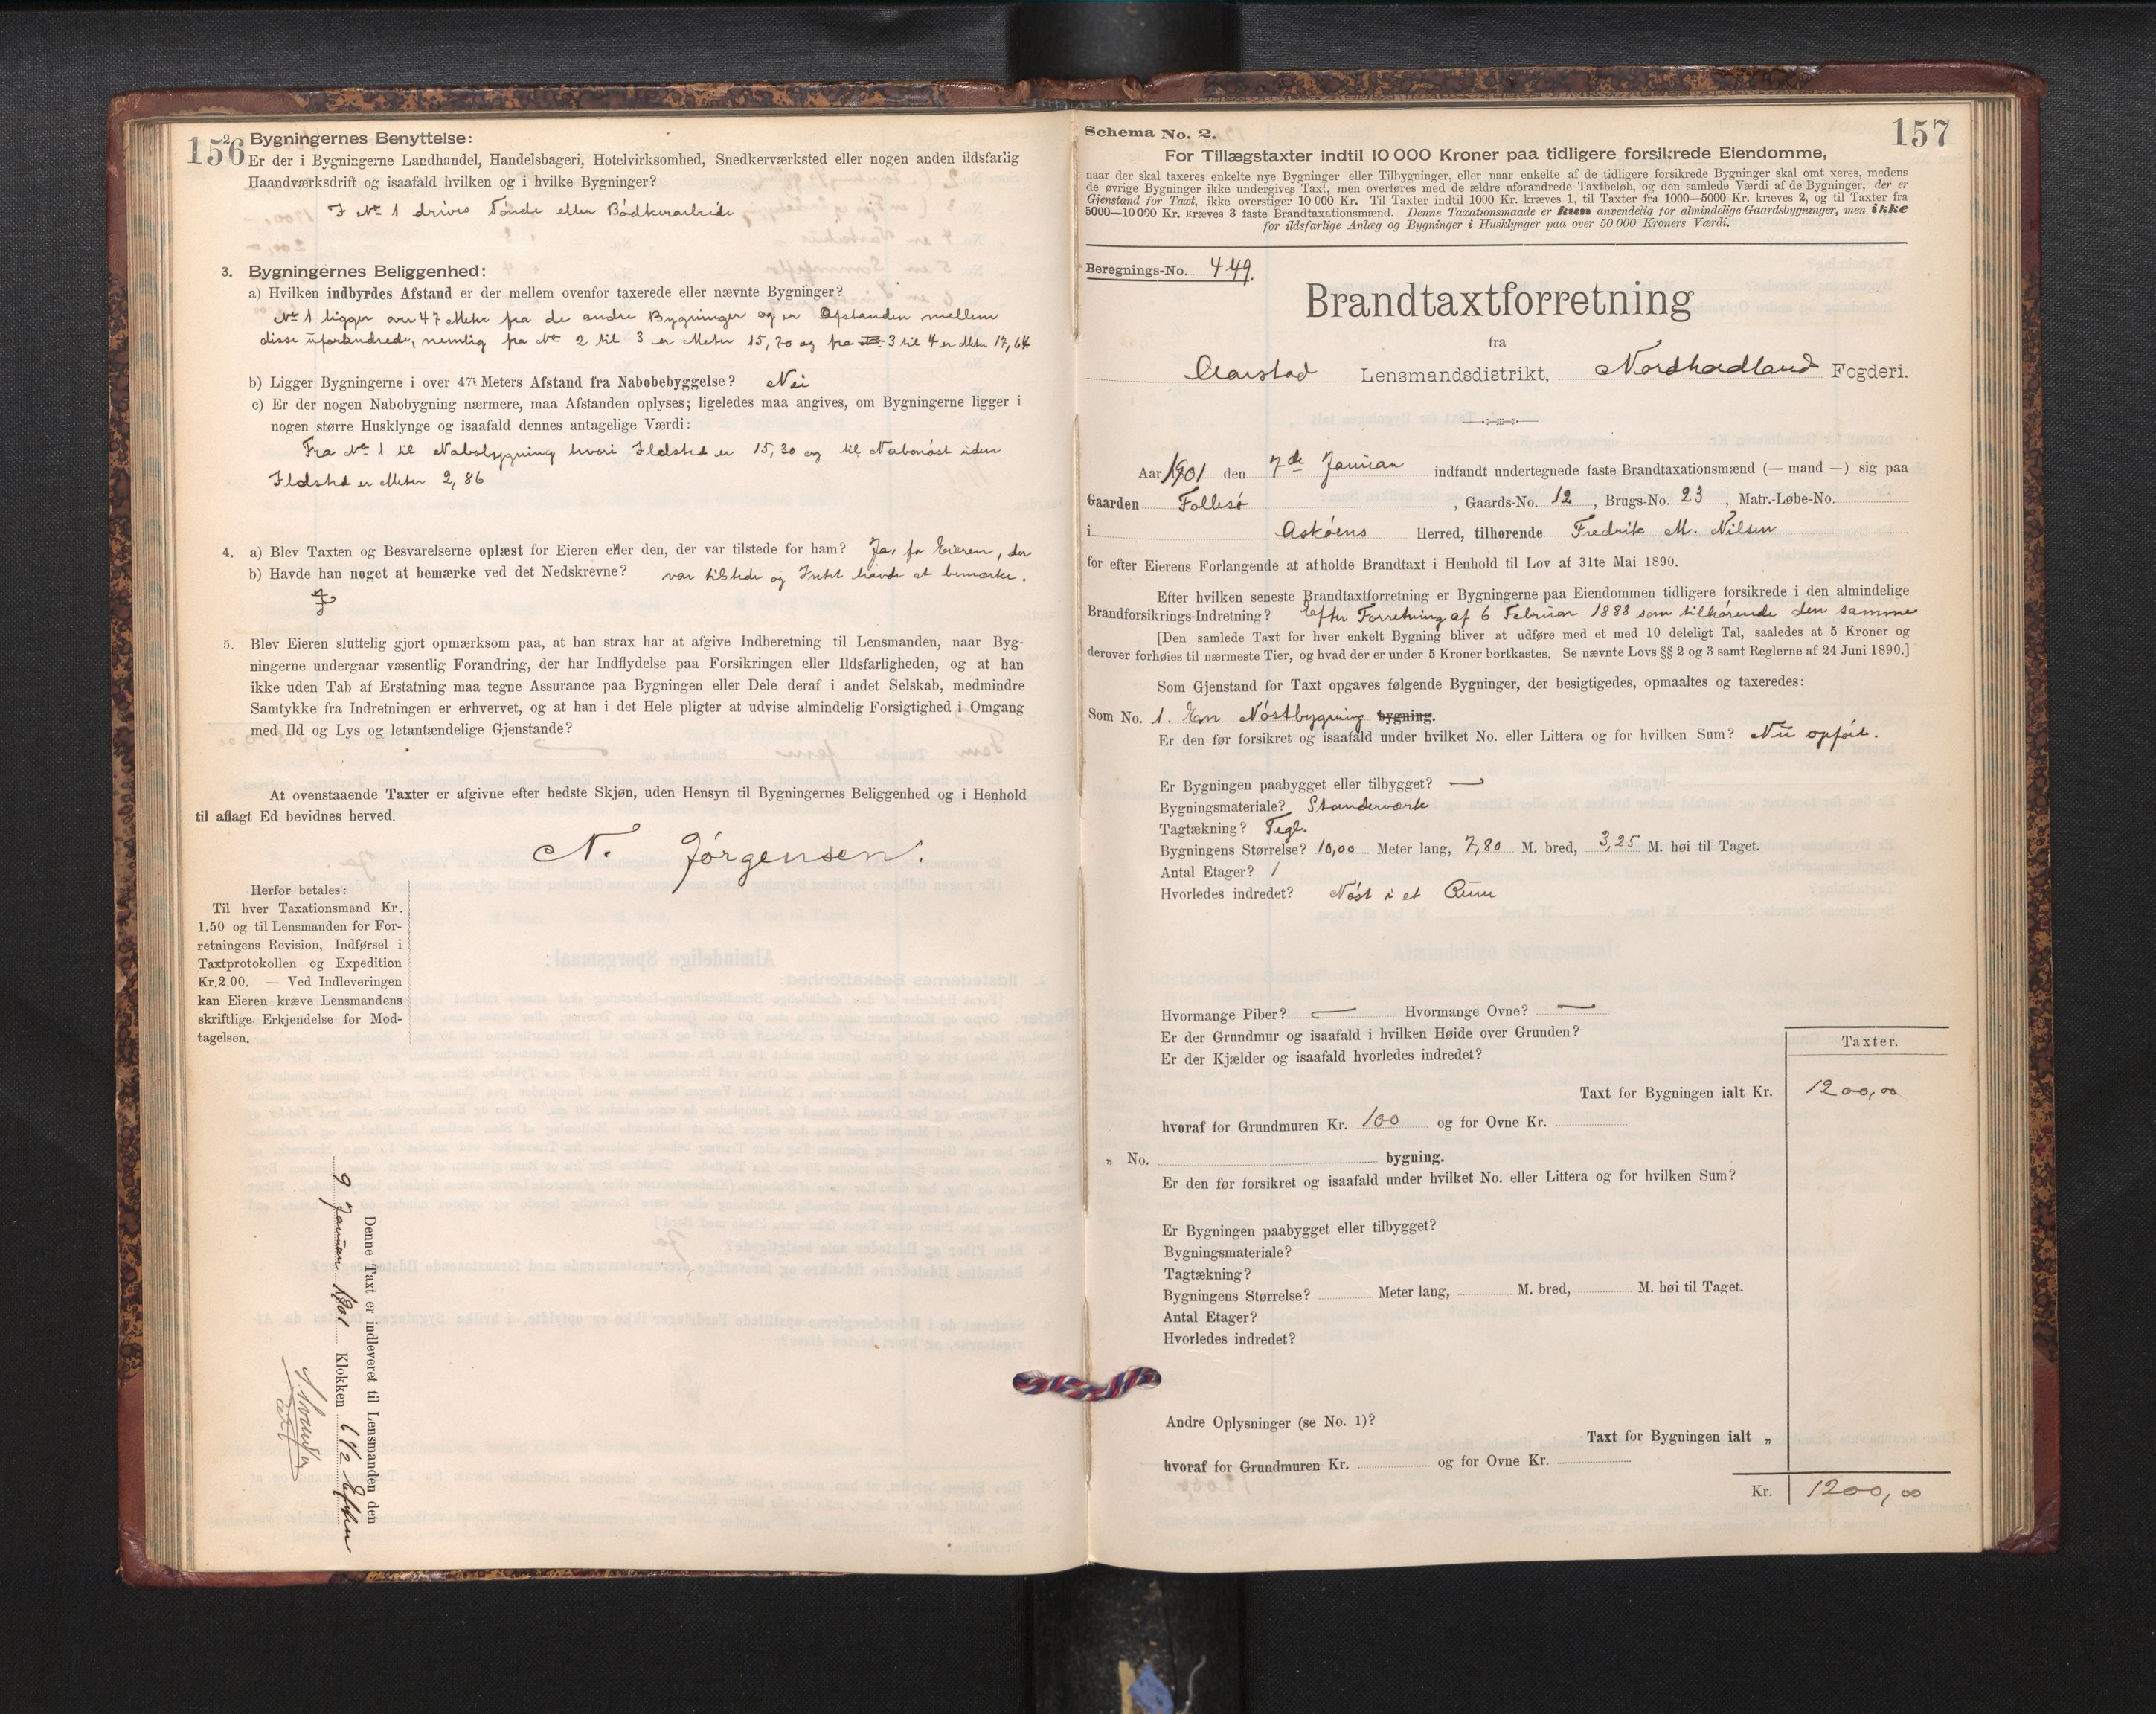 156
2. Bygningernes Benyttelse:
Er der i Bygningerne Landhandel, Handelsbageri, Hotelvirksomhed, Snedkerværksted eller nogen anden ildsfarlig
Haandværksdrift og isaafald hvilken og i hvilke Bygninger?
I No 1 drives Tønde eller Bødkerarbeide
3. Bygningernes Beliggenhed:
a) Hvilken indbyrdes Afstand er der mellem ovenfor taxerede eller nævnte Bygninger?
No 1 ligger over 47 Meter fra de andre Bygninger og er Afstanden mellem
disse uforandrede, nemlig fra No 2 til 3 er Meter 15,70 og fra 3 til 4 er Meter 17,64
b) Ligger Bygningerne i over 47 Meters Afstand fra Nabobebyggelse? Nei
c) Er der nogen Nabobygning nærmere, maa Afstanden oplyses; ligeledes maa angives, om Bygningerne ligger i
nogen større Husklynge og isaafald dennes antagelige Værdi:
Fra No 1 til Nabobygning hvori Ildsted er 15,30 og til Nabonøst uden
Ildsted er Meter 2,86
4. a) Blev Taxten og Besvarelserne oplæst for Eieren eller den, der var tilstede for ham? Ja, for Eieren, der
b) Havde han noget at bemærke ved det Nedskrevne? var tilstede og Intet havde at bemærke.
5. Blev Eieren sluttelig gjort opmærksom paa, at han strax har at afgive Indberetning til Lensmanden, naar Byg-
ningerne undergaar væsentlig Forandring, der har Indflydelse paa Forsikringen eller Ildsfarligheden, og at han
ikke uden Tab af Erstatning maa tegne Assurance paa Bygningen eller Dele deraf i andet Selskab, medmindre
Samtykke fra Indretningen er erhvervet, og at han i det Hele pligter at udvise almindelig Forsigtighed i Omgang
med Ild og Lys og letantændelige Gjenstande?
At ovenstaaende Taxter er afgivne efter bedste Skjøn, uden Hensyn til Bygningernes Beliggenhed og i Henhold
til aflagt Ed bevidnes herved.
N. Jørgensen.
Herfor betales:
Til hver Taxationsmand Kr.
1.50 og til Lensmanden for For-
retningens Revision, Indførsel i
Taxtprotokollen og Expedition
Kr.2.00. — Ved Indleveringen
kan Eieren kræve Lensmandens
skriftlige Erkjendelse for Mod-
tagelsen.
Denne Taxt er indleveret til Lensmanden den
9 Januar 1901 Klokken 6 1/2 Efter
157
Schema No. 2.
For Tillægstaxter indtil 10 000 Kroner paa tidligere forsikrede Eiendomme,
naar der skal taxeres enkelte nye Bygninger eller Tilbygninger, eller naar enkelte af de tidligere forsikrede Bygninger skal omt xeres, medens
de øvrige Bygninger ikke undergives Taxt, men overføres med de ældre uforandrede Taxtbeløb, og den samlede Værdi af de Bygninger, der er
Gjenstand for Taxt, ikke overstiger 10 000 Kr. Til Taxter indtil 1000 Kr. kræves 1, til Taxter fra 1000—5000 Kr. kræves 2, og til Taxter fra
5000—10 000 Kr. kræves 3 faste Brandtaxationsmænd. Denne Taxationsmaade er kun anvendelig for almindelige Gaardsbygninger, men ikke
for ildsfarlige Anlæg og Bygninger i Husklynger paa over 50 000 Kroners Værdi.
Beregnings-No. 449.
Brandtaxtforretning
fra
Aarstad Lensmandsdistrikt, Nordhordland Fogderi.
Aar 1901 den 7de Januar indfandt undertegnede faste Brandtaxationsmænd (— mand —) sig paa
Gaarden Follesø, Gaards-No. 12, Brugs-No. 23, Matr.-Løbe-No.
i Askøens Herred, tilhørende Fredrik M. Nilsen
for efter Eierens Forlangende at afholde Brandtaxt i Henhold til Lov af 31te Mai 1890.
Efter hvilken seneste Brandtaxtforretning er Bygningerne paa Eiendommen tidligere forsikrede i den almindelige
Brandforsikrings-Indretning? Efter Forretning af 6 Februar 1888 som tilhørende den samme
[Den samlede Taxt for hver enkelt Bygning bliver at udføre med et med 10 deleligt Tal, saaledes at 5 Kroner og
derover forhøies til nærmeste Tier, og hvad der er under 5 Kroner bortkastes. Se nævnte Lovs §§ 2 og 3 samt Reglerne af 24 Juni 1890.]
Som Gjenstand for Taxt opgaves følgende Bygninger, der besigtigedes, opmaaltes og taxeredes:
Som No. 1. En Nøstbygning bygning.
Er den før forsikret og isaafald under hvilket No. eller Littera og for hvilken Sum? Nu opført.
Er Bygningen paabygget eller tilbygget? —
Bygningsmateriale? Standerværk
Tagtækning? Tegl.
Bygningens Størrelse? 10,00 Meter lang, 7,80 M. bred, 3,25 M. høi til Taget.
Antal Etager? 1
Hvorledes indredet? Nøst i et Rum
Hvormange Piber? — Hvormange Ovne? —
Er der Grundmur og isaafald i hvilken Høide over Grunden?
Er der Kjælder og isaafald hvorledes indredet?
Taxter.
Taxt for Bygningen ialt Kr. 1200,00
hvoraf for Grundmuren Kr. 100 og for Ovne Kr.
„ No. bygning.
Er den før forsikret og isaafald under hvilket No. eller Littera og for hvilken Sum?
Er Bygningen paabygget eller tilbygget?
Bygningsmateriale?
Tagtækning?
Bygningens Størrelse? Meter lang, M. bred, M. høi til Taget.
Antal Etager?
Hvorledes indredet?
Andre Oplysninger (se No. 1)?
Taxt for Bygningen ialt „
hvoraf for Grundmuren Kr. og for Ovne Kr.
Kr. 1200,00